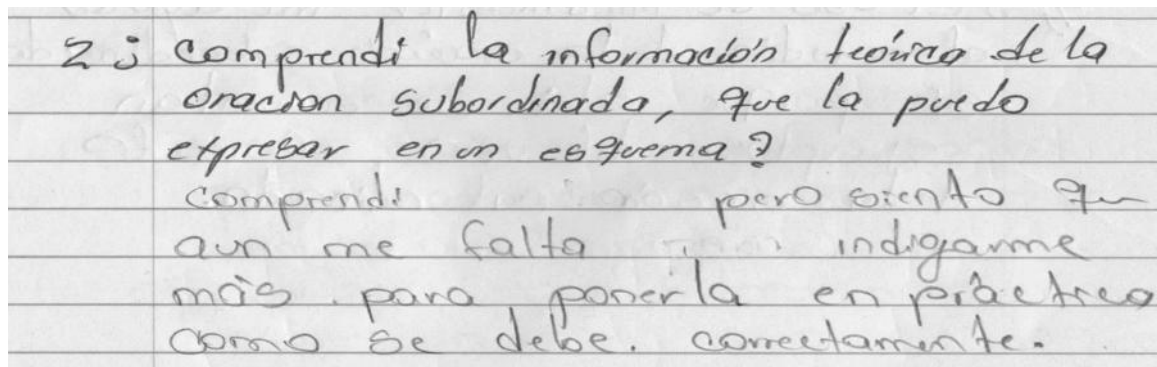 2¿ comprendi la información teórica de la
oracion subordinada, que la puedo
expresar en un esquema?
comprendi pero siento que
aun me falta indigarme
más para ponerla en práctica
como se debe. correctamente.